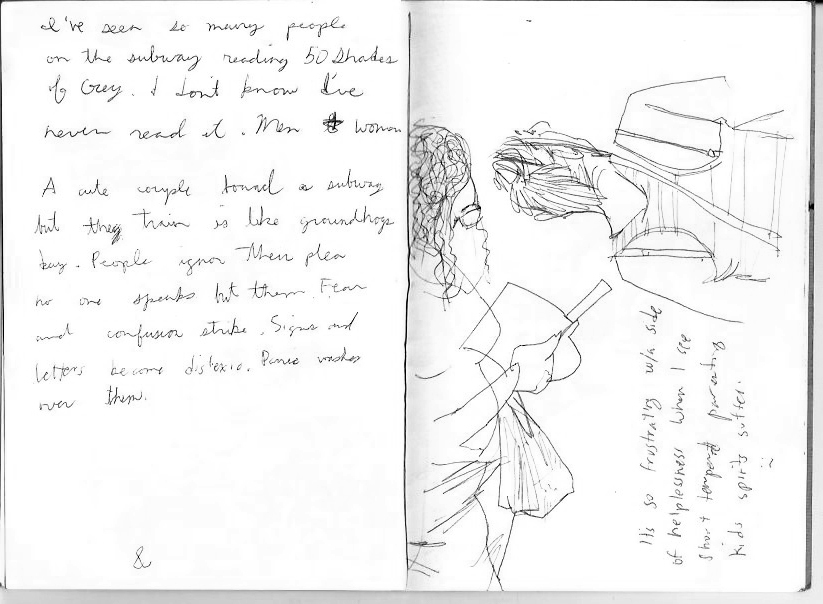 I've seen so many people
on the subway reading 50 Shades
of Grey. I don't know I've
never read it. Men & woman
A cute couple a subway
but they train is like groundhogs
day. People ignor their plea
no one speaks but them. Fear
and confusion strike. Signs and
letters become dislexic. Panic washes
over them.
&
Its so frustrating w/a side
of helplessness when I see
short temperd parenting
kids spirits suffer.